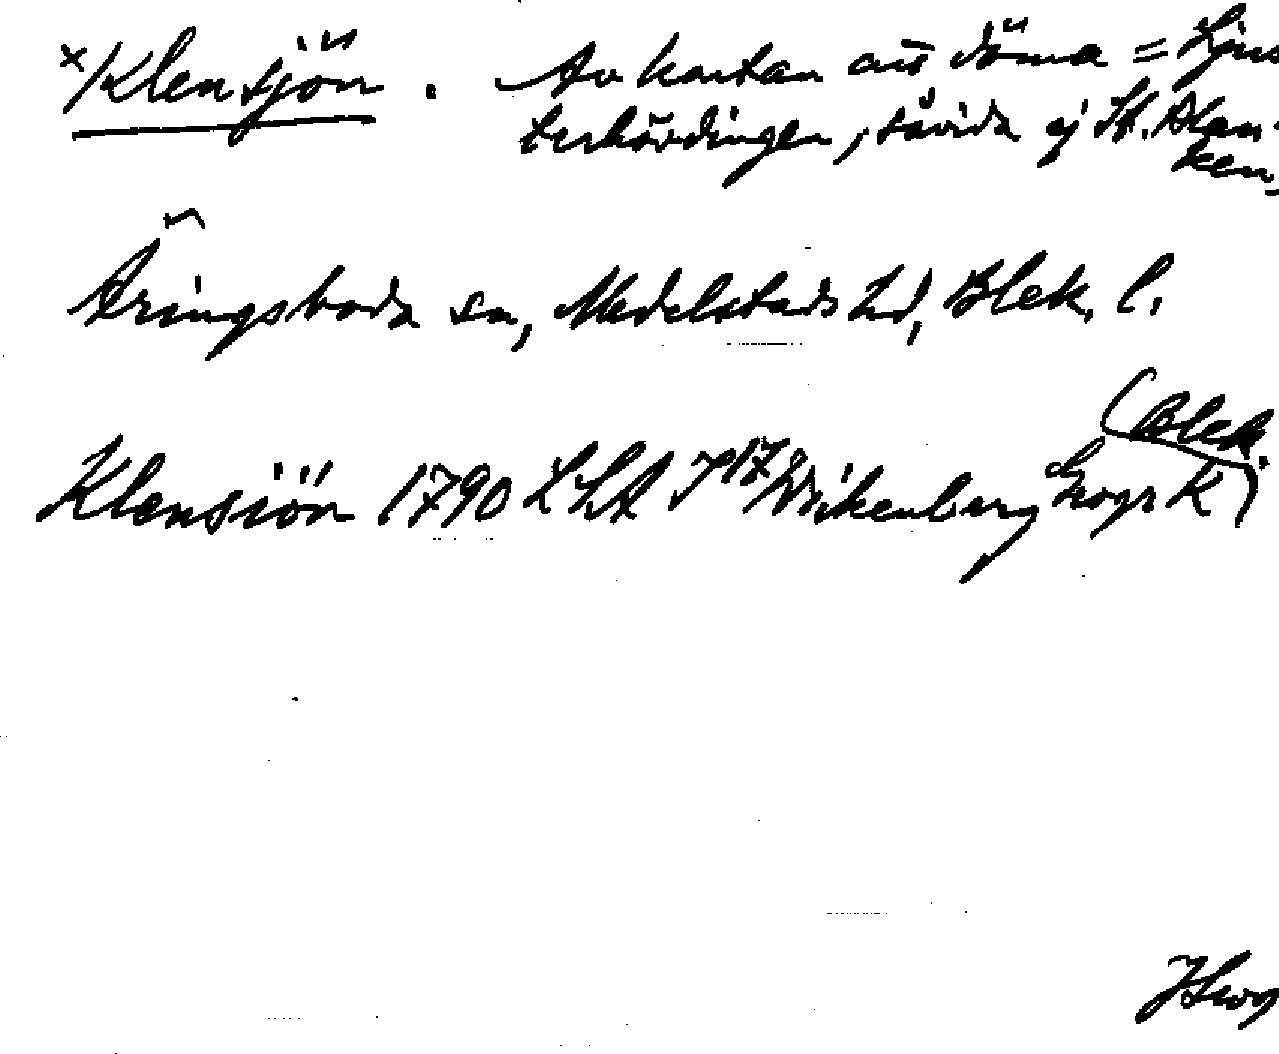 x/Klensjön. Av kartan att döma = Ljus
terhövdingen, såvida ej St. Blan-
ken.
Äringsboda sn, Medelstads hd, Blek. l.
(Blek.
Klensiön 1790 LSA J 17 Wikenberg Geogr K)